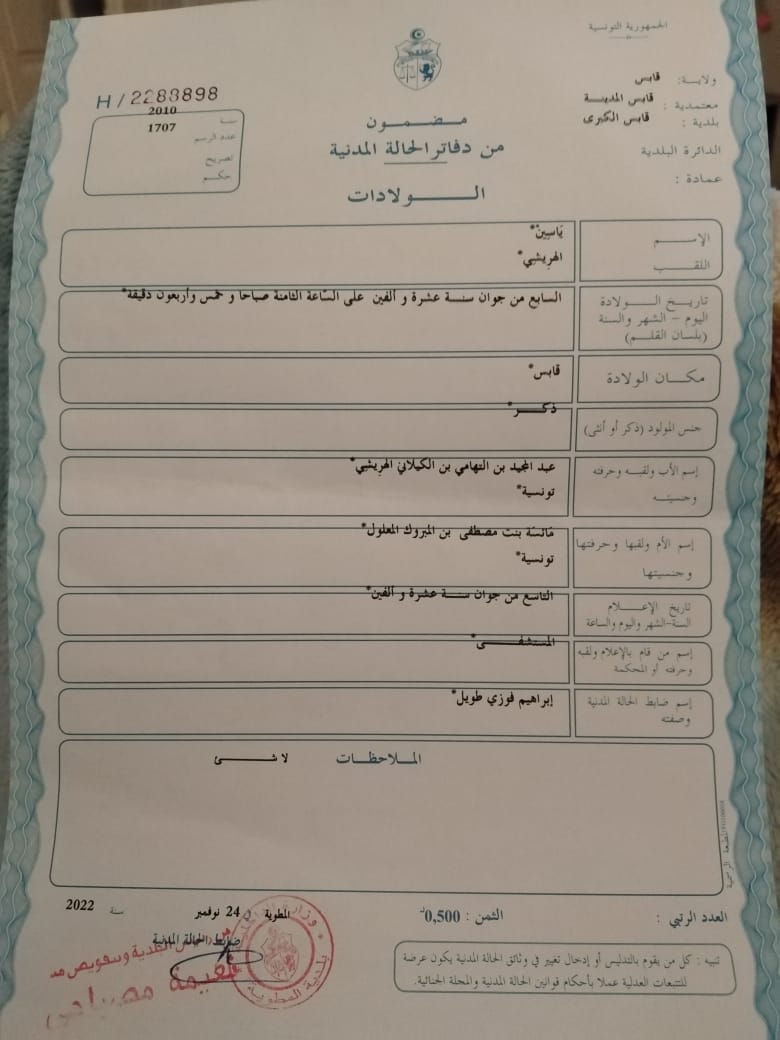 الجمهورية التونسية
ولاية: قابس
معتمدية : قابس المدينة
بلدية : قابس الكبرى
الدائرة البلدية
عمادة :
H / 2283898
سنة 2010
عدد الرسم 1707
تصريح
حكم
مضمون
من دفاتر الحالة المدنية
الولادات
الإسم يَاسِينْ*
اللقب الهريشي*
تاريخ الولادة
اليوم – الشهر والسنة
(بلسان القلم)
السابع من جوان سنة عشرة و ألفين على السّاعة الثامنة صباحا و خمس وأربعون دقيقة*
مكان الولادة قابس*
جنس المولود (ذكر أو أنثى) ذكر*
إسم الأب ولقبه وحرفته عبد المجيد بن التهامي بن الكيلاني الهريشي*
وجنسيته تونسية*
إسم الأم ولقبها وحرفتها مَائسَة بنت مصطفى بن المبروك المعلول*
وجنسيتها تونسية*
تاريخ الإعلام التاسع من جوان سنة عشرة و ألفين*
السنة-الشهر واليوم والساعة
إسم من قام بالإعلام ولقبه المستشفى*
وحرفته أو المحكمة
إسم ضابط الحالة المدنية إبراهيم فوزي طويل*
وصفته
الملاحظات لا شئ
المطبعة الرسمية
العدد الرتبي : الثمن : 0,500د
المطوية 24 نوفمبر سنة 2022
ضابط الحالة المدنية
وزارة الداخلية
بلدية المطوية
نعيمة مصباحي
تنبيه : كل من يقوم بالتدليس أو إدخال تغيير في وثائق الحالة المدنية يكون عرضة
للتتبعات العدلية عملا بأحكام قوانين الحالة المدنية والمجلة الجنائية.